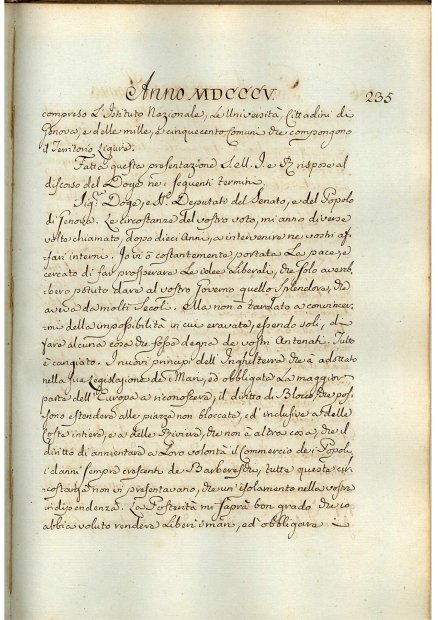 Anno MDCCCV. 235
compreso L'Istituto Nazionale, Le Università, Cittadini di
Genova, e delle mille, e cinquecento Comuni che compongono
il Territorio Ligure.
Fatta questa presentazione S. e R. rispose al
discorso del Doge ne i seguenti termini.
Sig.r Doge, e SS.ri Deputati del Senato, e del Popolo
di Genova. Le circostanze del vostro voto, mi anno diverse
volte chiamato, dopo dieci anni, a intervenire ne vostri af-
fari interni. Io vi ò costantemente portata La pace, e
cercato di far prosperare Le idee Liberali, che solo avereb-
bero potuto dare al vostro Governo quello Splendore, che
aveva da molti Secoli. Ma non ò tardato a convincer-
mi della impossibilità in cui eravate, essendo soli, di
fare alcuna cosa che fosse degna de vostri Antenati. Tutto
è cangiato. I nuovi principi dell'Inghilterra che à adottato
nella sua Legislazione de i Mari, ed obbligata La maggior
parte dell'Europa a riconoscere, il diritto di Blocco che pos-
sono estendere alle piazze non bloccate, ed inclusive a delle
Coste intiere, e a delle Riviere, che non è altra cosa, che il
diritto di annientare a Loro volontà il Commercio de i Popoli
i danni sempre crescenti de Barbereschi, tutte queste cir-
costanze non vi presentavano, che un'isolamento nella vostra
indipendenza. La Posterità mi saprà bon grado che io
abbia voluto rendere liberi i mari, ed obbligare